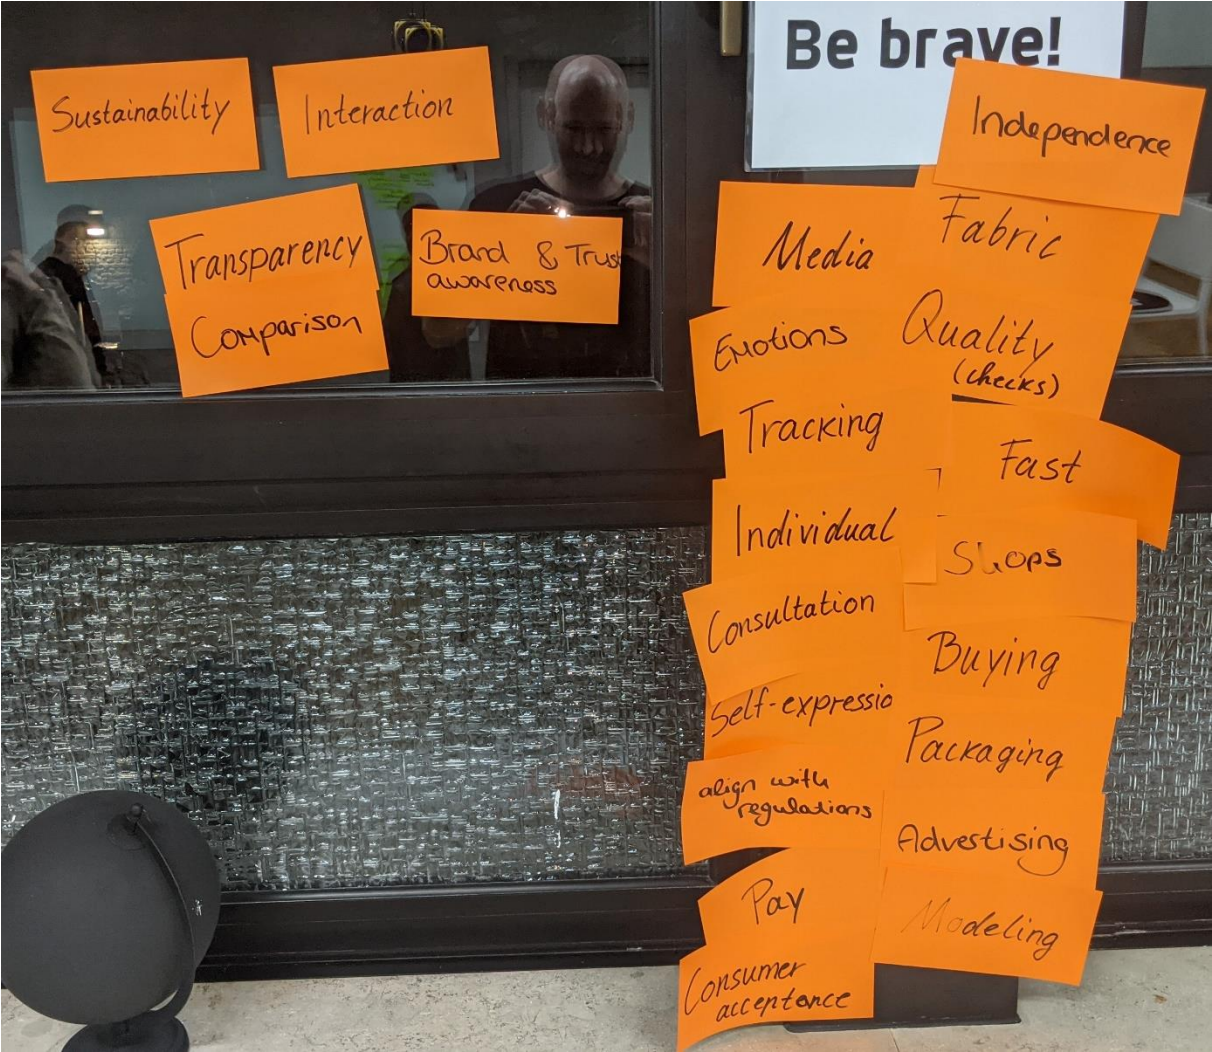 Be brave!
Sustainability
Interaction
Transparency
Comparison
Brand & Trus
awareness
Independence
Media
Fabric
Emotions
Quality
(checks)
Tracking
Fast
Individual
Shops
Consultation
Buying
Self-expressio
Packaging
align with
regulations
Advertising
Pay
Modeling
Consumer
acceptance